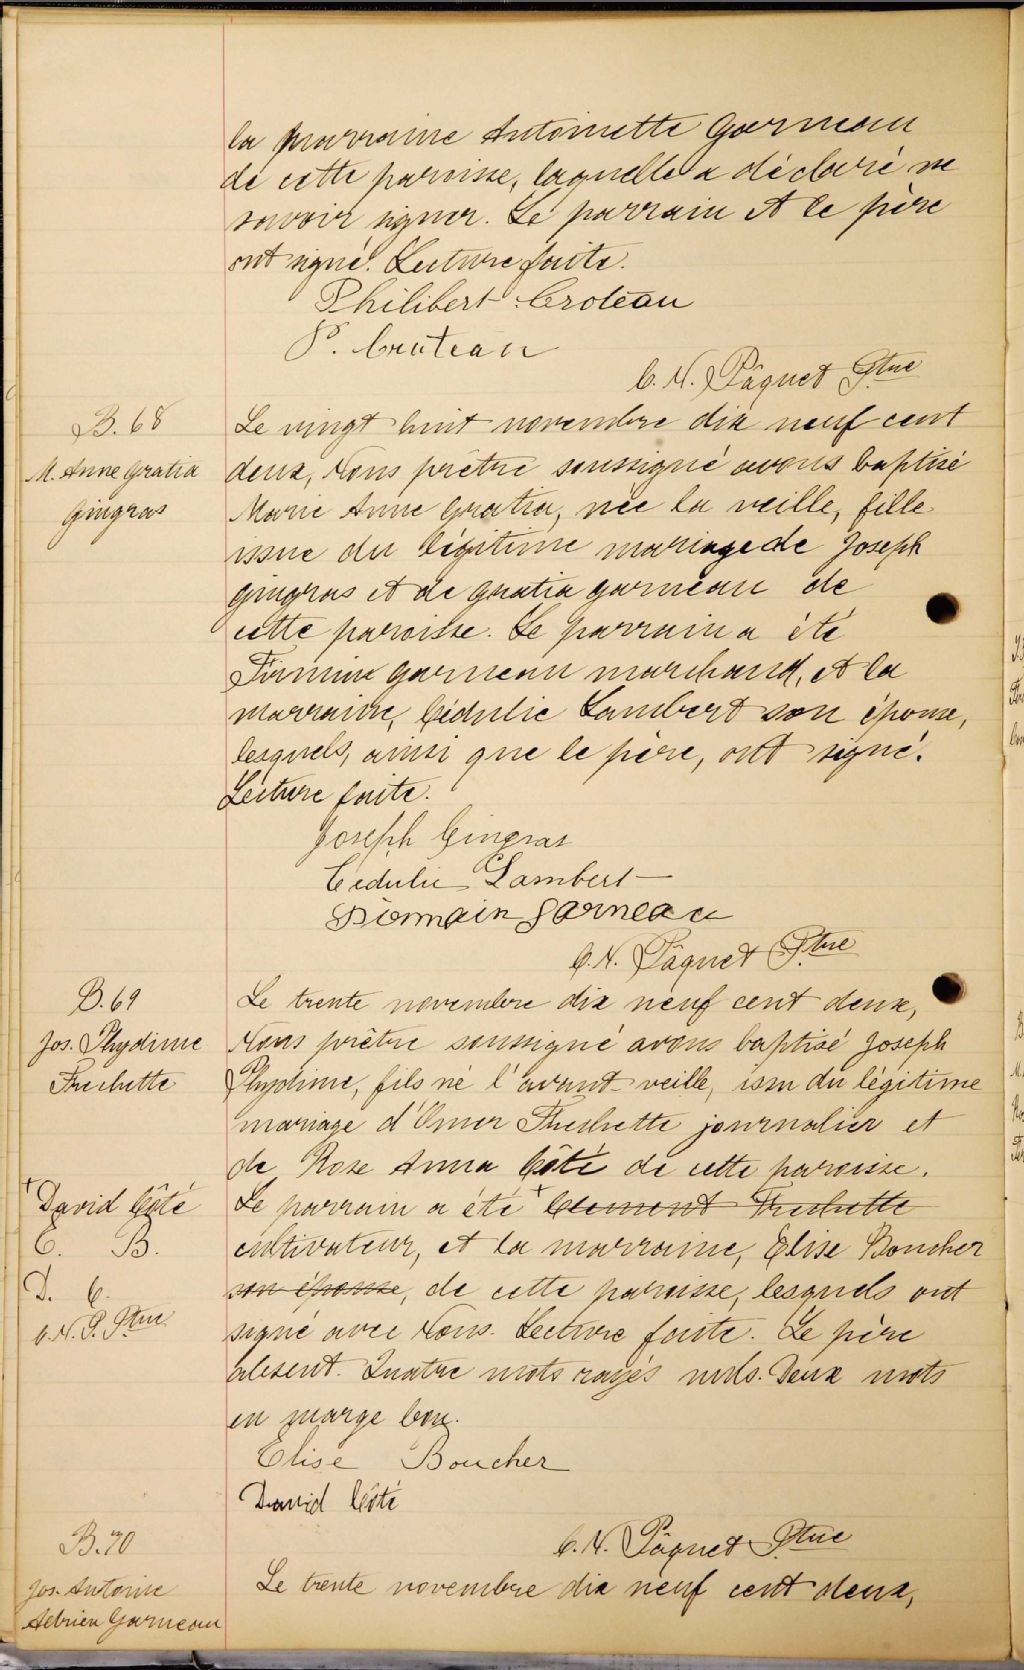 la marraine Antoinette Garneau
de cette paroisse, laquelle a déclaré ne
savoir signer. Le parrain et le père
ont signé. Lecture faite.
Philibert Croteau
P. Croteau
C. N. Pâquet Ptre
B. 68
M. Anne Gratia
Gingras
Le vingt huit novembre dix neuf cent
deux, Nous prêtre soussigné avons baptisé
Marie Anne Gratia, née la veille, fille
issue du légitime mariage de Joseph
Gingras et de Gratia Garneau de
cette paroisse. Le parrain a été
Firmin Garneau marchand, et la
marraine, Cédulie Lambert son épouse,
lesquels, ainsi que le père, ont signé.
Lecture faite.
Joseph Gingras
Cédulie Lambert
Garneau
C. N. Pâquet Ptre
B. 69
Jos. Phydime
Frechette
Le trente novembre dix neuf cent deux,
Nous prêtre soussigné avons baptisé Joseph
Phydime, fils né l'avant-veille, issu du légitime
mariage d'Omer Frechette journalier et
de Rose Anna Côté de cette paroisse.
Le parrain a été + Clement Frechette
+ David Côté
E. B.
D. C.
C. N. P. Ptre
cultivateur, et la marraine, Elise Boucher
son épouse, de cette paroisse, lesquels ont
signé avec Nous. Lecture faite. Le père
absent. Quatre mots rayés nuls. Deux mots
en marge bon.
Elise Boucher
David Côté
C. N. Pâquet Ptre
B. 70
Jos. Antoine
Adrien Garneau
Le trente novembre dix neuf cent deux,